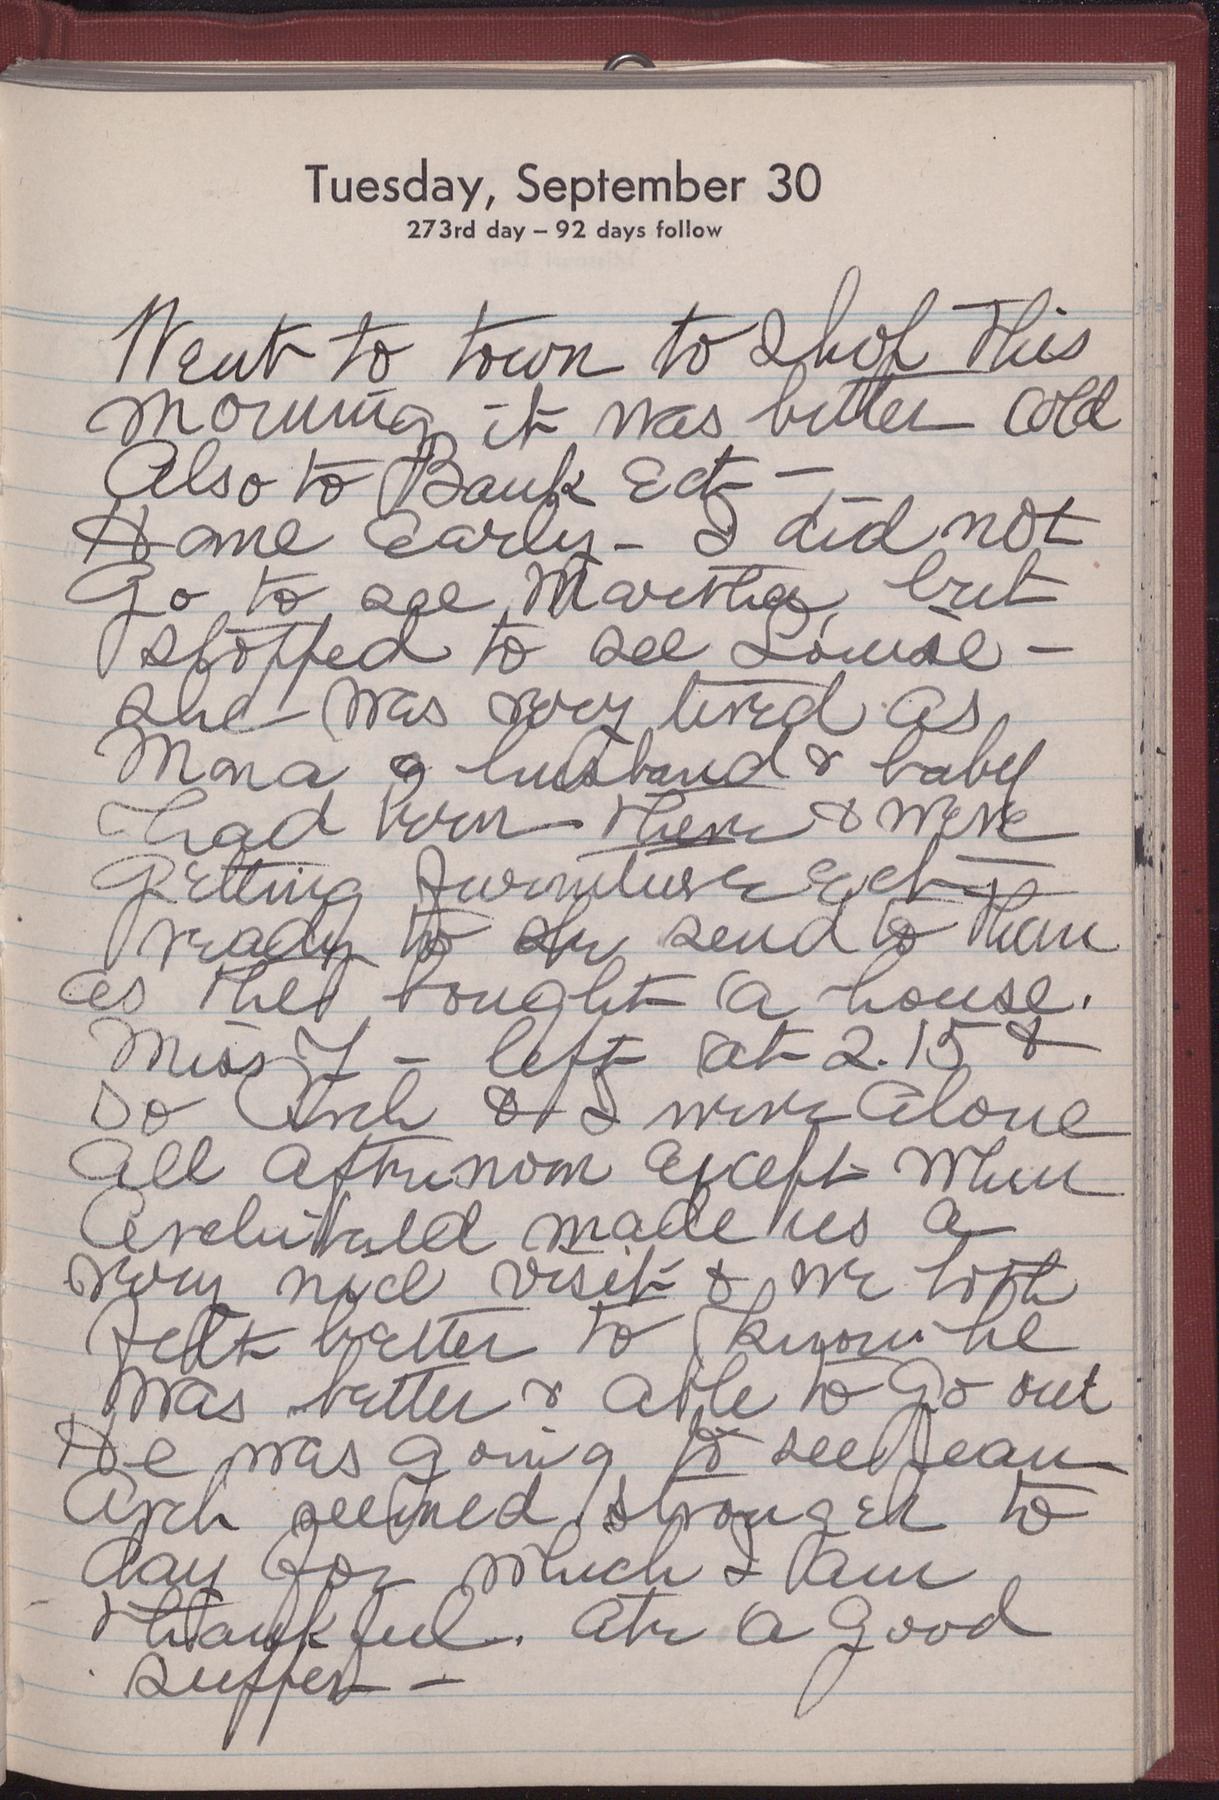 Tuesday, September 30
273rd day – 92 days follow
Went to town to shop this
morning it was bitter cold
Also to Bank Ect –
Home early – I did not
go to see Martha, but
stopped to see Louise –
she – was very tired as
Mona & husband & baby
had been there & were
getting furniture Ect –
ready to she send to them
as they bought a house.
Miss Y – left at 2.15 &
so Arch & I were alone
all afternoon except when
Archibald made us a
very nice visit & we both
felt better to know he
was better & able to go out
He was going to see Jean
Arch seemed stronger to
day for which I am
thankful. ate a good
supper –